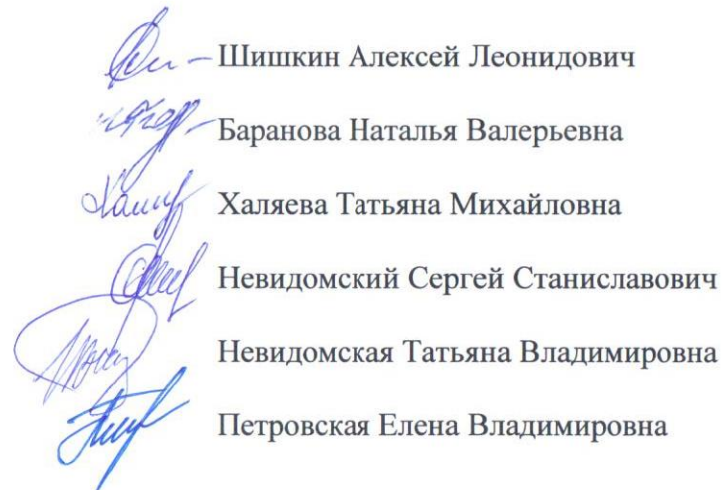 Шишкин Алексей Леонидович
Баранова Наталья Валерьевна
Халяева Татьяна Михайловна
Невидомский Сергей Станиславович
Невидомская Татьяна Владимировна
Петровская Елена Владимировна